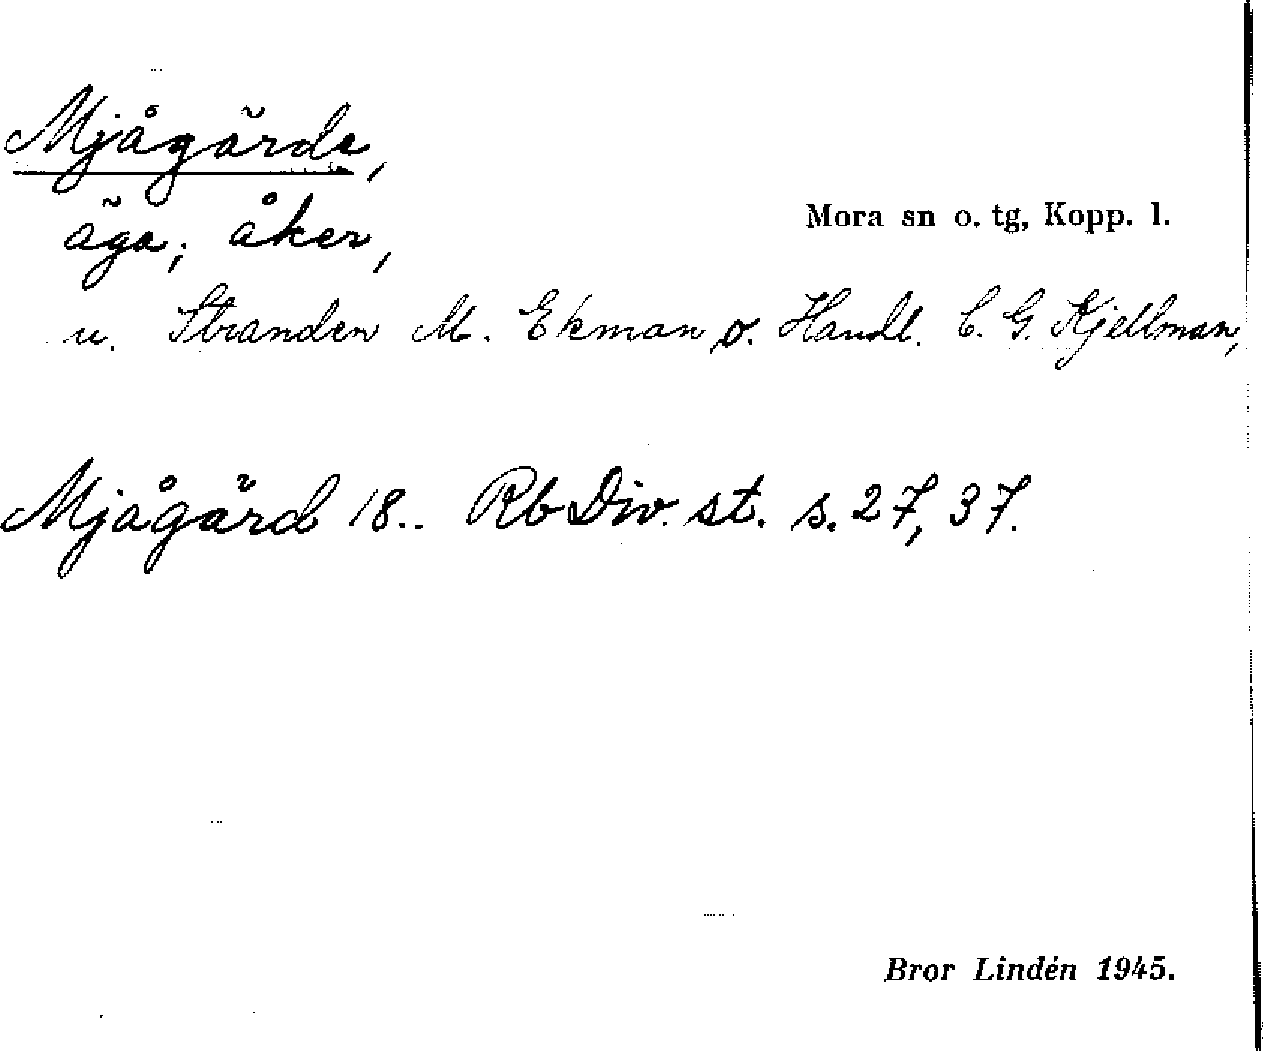 Mjågärde,
äga; åker,
Mora sn o. tg, Kopp. l.
u. Stranden M. Ekman o. Handl. C. G. Kjellman,
Mjågärd 18.. Rb Div. st. s. 27, 37.
Bror Lindén 1945.